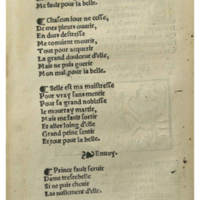 Me fault pour la belle.
¶ Chascun loue ne cesse,
De mes pleurs ouurir,
En dure destresse
Me conuient mourir,
Tout pour acquerir
La grand douleur d'elle,
Mais ne puis guerir
Mon mal pour la belle.
¶ Belle est ma maistresse
Pour vray sans mentir
Pour sa grand noblesse
Ie mourray martir,
Mais me fault sentir
Et aller loing d'elle
Grand peine sentir
Et tout pour la belle.
Enuoy.
¶ Prince fault seruir
Dame tresbelle
Si ne puis cheuir
Las nullement d'elle.